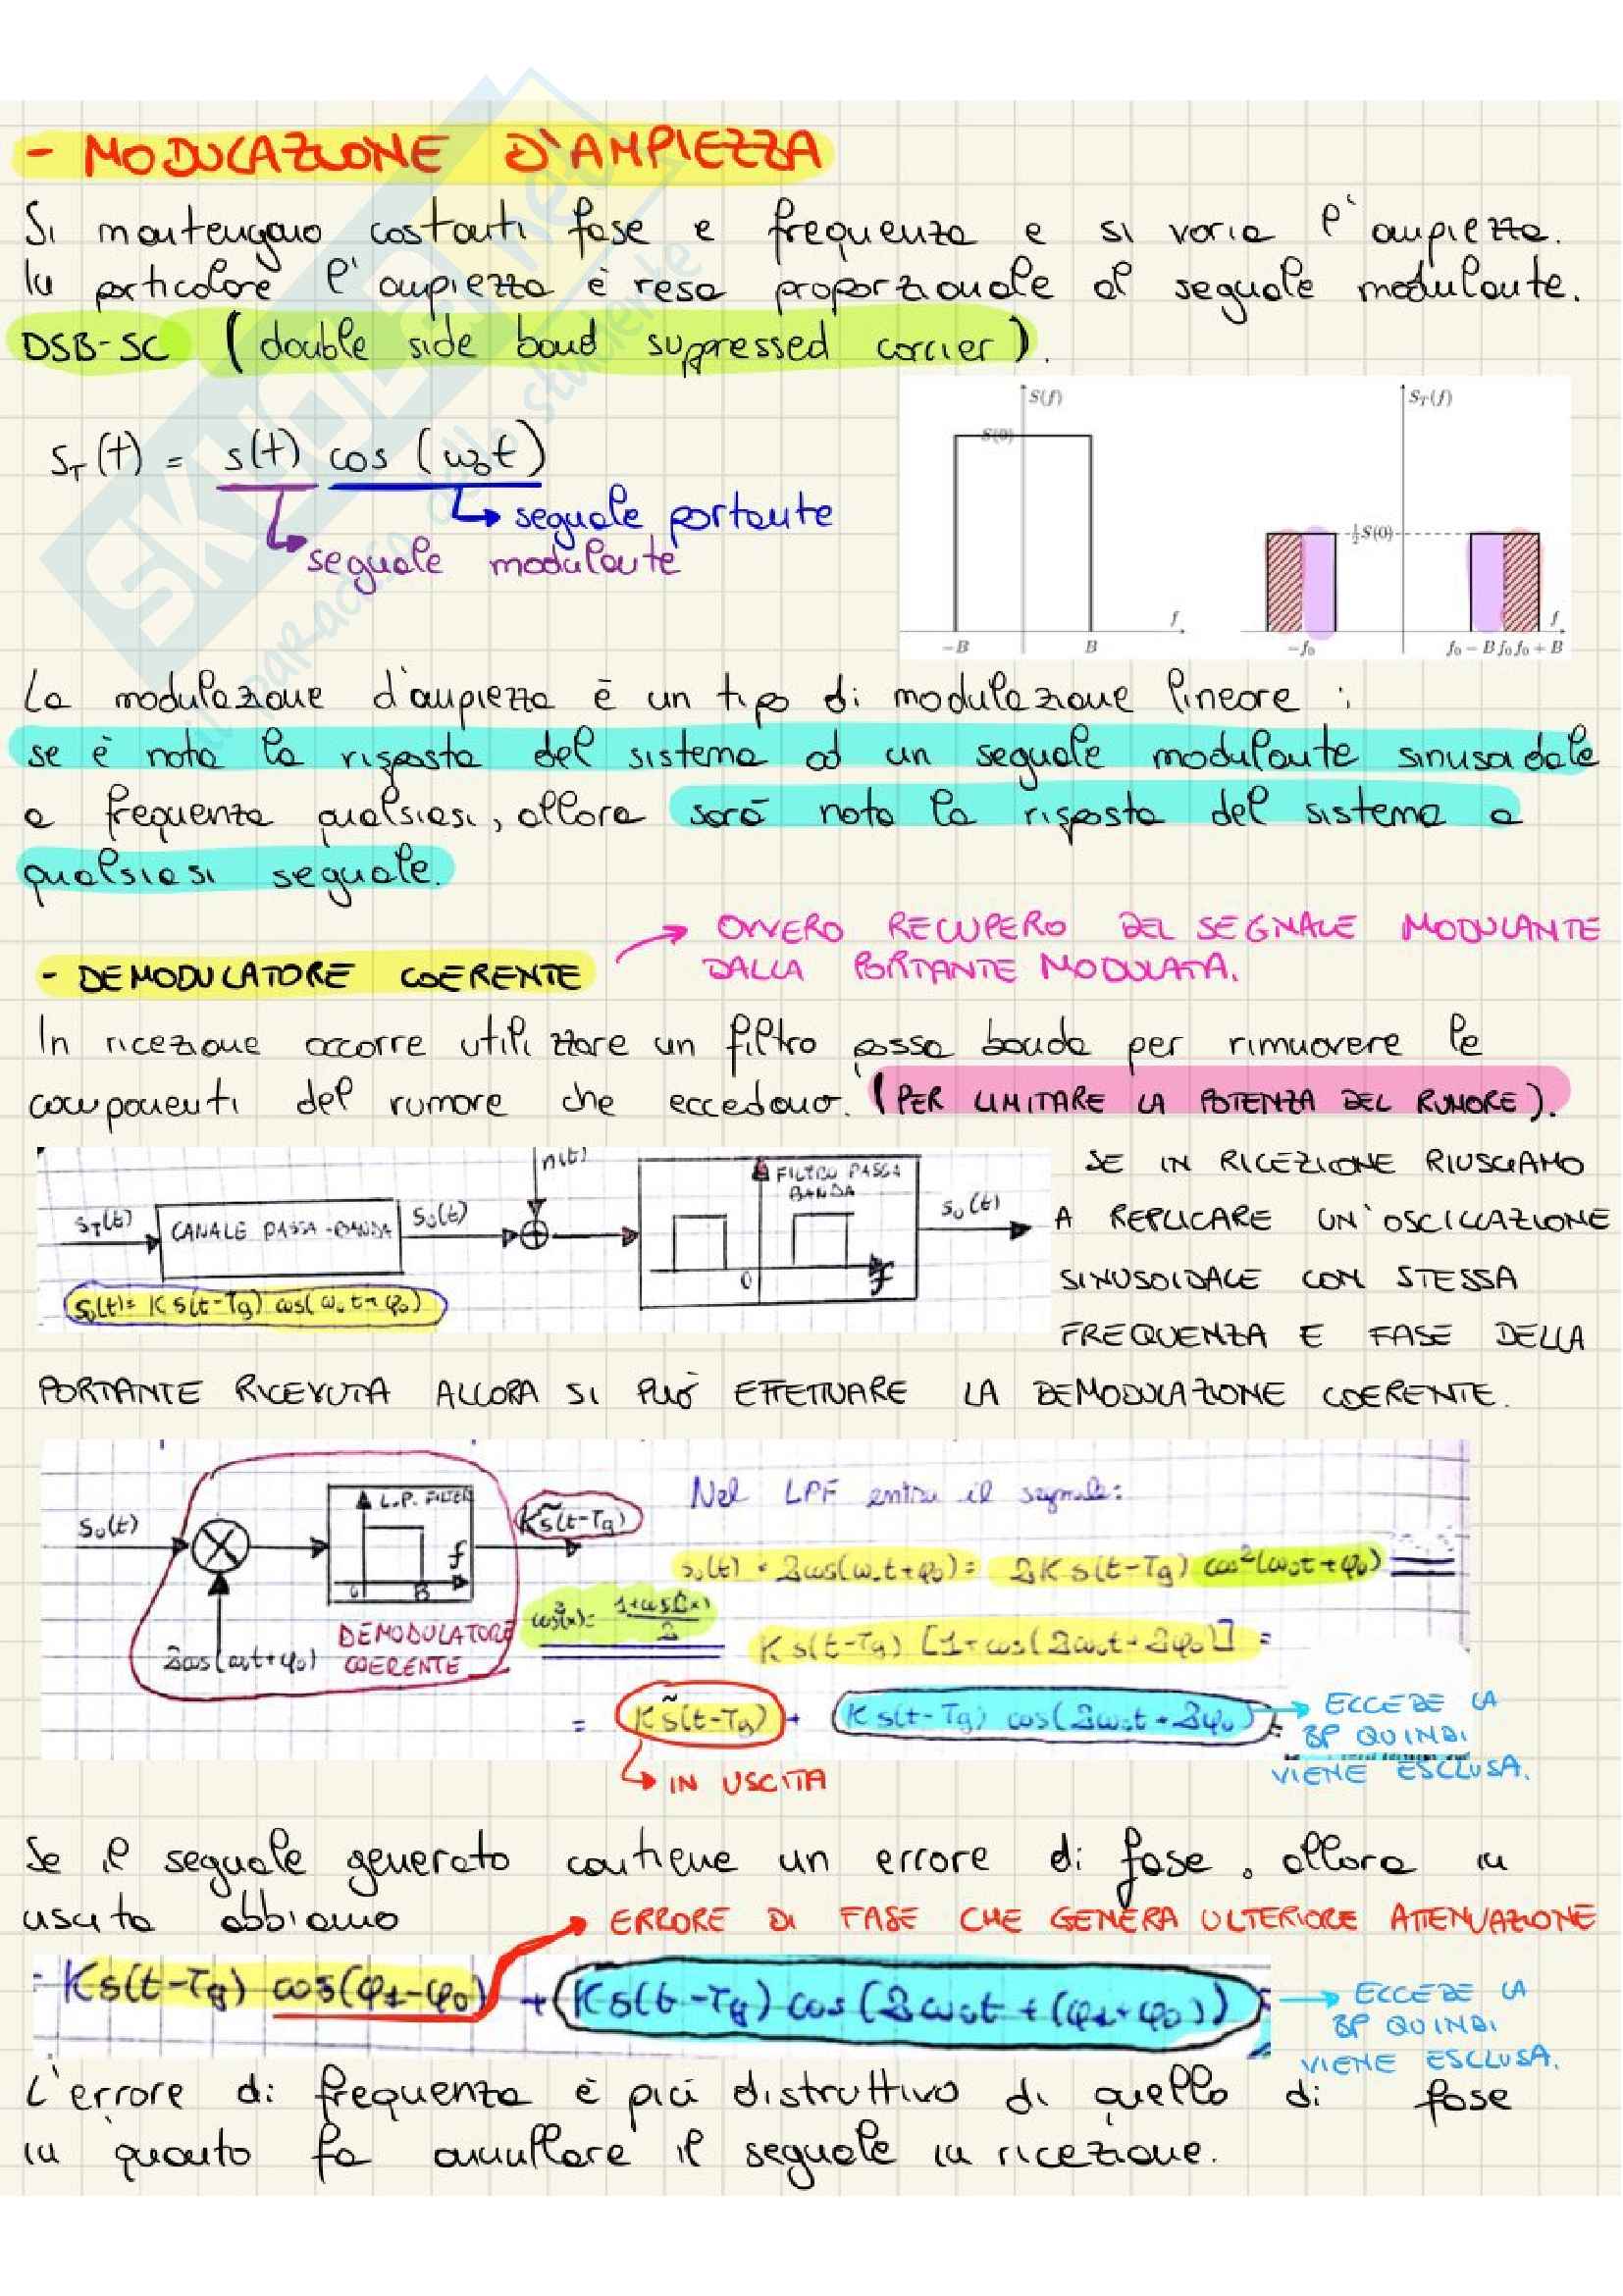 - MODULAZIONE D'AMPIEZZA
Si mantengono costanti fase e frequenza e si varia l'ampiezza.
In particolare l'ampiezza è resa proporzionale al segnale modulante.
DSB-SC (double side band suppressed carrier).
S(f)
S(0)
-B
B
f
S_T(f)
½S(0)
-f₀
f₀ - B f₀ f₀ + B
f
s_T(t) = s(t) cos(ω₀t)
segnale portante
segnale modulante
La modulazione d'ampiezza è un tipo di modulazione lineare :
se è nota la risposta del sistema ad un segnale modulante sinusoidale
a frequenza qualsiasi, allora sarà nota la risposta del sistema a
qualsiasi segnale.
OVVERO RECUPERO DEL SEGNALE MODULANTE
DALLA PORTANTE MODULATA.
- DEMODULATORE COERENTE
In ricezione occorre utilizzare un filtro passa banda per rimuovere le
componenti del rumore che eccedono. (PER LIMITARE LA POTENZA DEL RUMORE).
n(t)
FILTRO PASSA
BANDA
s_T(t)
CANALE PASSA-BANDA
s₀(t)
s₀(t)
0
f
s₀(t) = K s(t-Tg) cos(ω₀t+φ₀)
SE IN RICEZIONE RIUSCIAMO
A REPLICARE UN'OSCILLAZIONE
SINUSOIDALE CON STESSA
FREQUENZA E FASE DELLA
PORTANTE RICEVUTA ALLORA SI PUÒ EFFETTUARE LA DEMODULAZIONE COERENTE.
L.P. FILTER
s₀(t)
K s̃(t-Tg)
f
0
B
2cos(ω₀t+φ₀)
DEMODULATORE
COERENTE
Nel LPF entra il segnale:
s₀(t) · 2cos(ω₀t+φ₀) = 2K s(t-Tg) cos²(ω₀t+φ₀)
cos²(x) = 1+cos(2x)/2
K s(t-Tg) [1+cos(2ω₀t+2φ₀)] =
= K s̃(t-Tg) + K s(t-Tg) cos(2ω₀t+2φ₀)
ECCEDE LA
BP QUINDI
VIENE ESCLUSA.
IN USCITA
Se il segnale generato contiene un errore di fase, allora in
uscita abbiamo
ERRORE DI FASE CHE GENERA ULTERIORE ATTENUAZIONE
K s(t-Tg) cos(φ₁-φ₀) + K s(t-Tg) cos(2ω₀t + (φ₁+φ₀))
ECCEDE LA
BP QUINDI
VIENE ESCLUSA.
L'errore di frequenza è più distruttivo di quello di fase
in quanto fa annullare il segnale in ricezione.